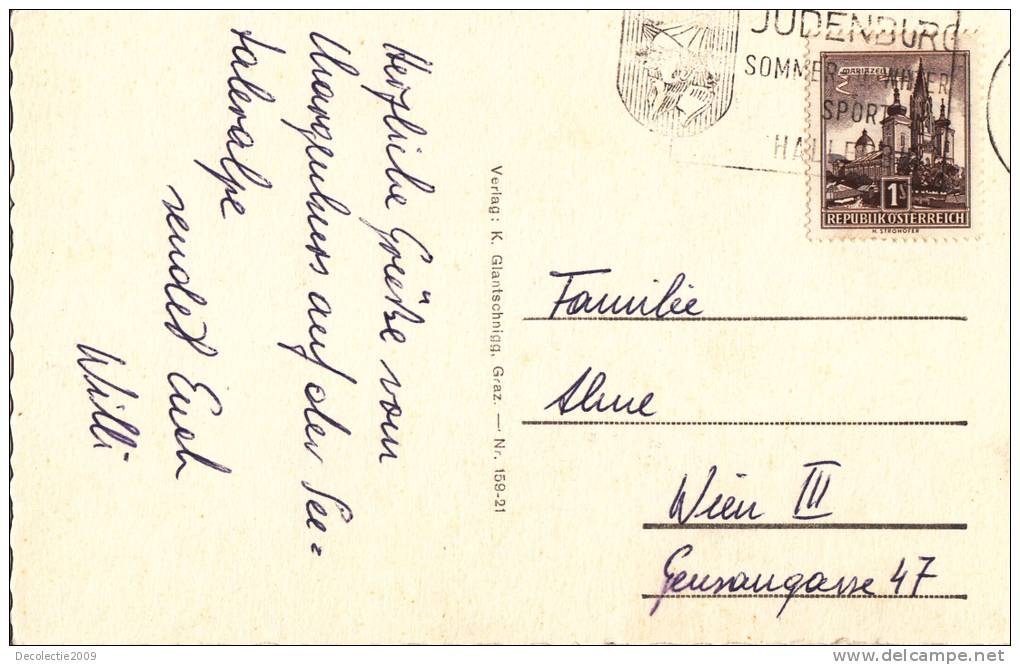 Herzliche Grüße vom
auf der See=
taleralpe
sendet Euch
Willi
Verlag: K. Glantschnigg, Graz. — Nr. 159-21
JUDENBURG
SOMMER- WINTER
SPORT
MARIAZELL
1S
REPUBLIK ÖSTERREICH
H. STROHOFER
Familie
Wien III
Gensaugasse 47
Decolectie2009
delcampe.net